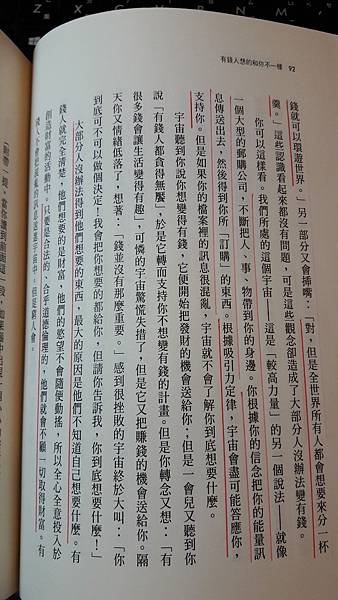 有錢人想的和你不一樣 92
錢就可以環遊世界。」另一部分又會插嘴：「對，但是全世界所有人都會想要來分一杯
羹。」這些認識看起來都沒有問題，可是這些觀念卻造成了大部分人沒辦法變有錢。
你可以這樣看。我們所處的這個宇宙——這是「較高力量」的另一個說法——就像
一個大型的郵購公司，不斷把人、事、物帶到你的身邊。你根據你的信念把你的能量訊
息傳送出去，然後得到你所「訂購」的東西。根據吸引力定律，宇宙會盡可能答應你，
支持你。但是如果你的檔案裡的訊息很混亂，宇宙就不會了解你到底想要什麼。
宇宙聽到你說你想變得有錢，它便開始把發財的機會送給你；但是一會兒又聽到你
說「有錢人都貪得無饜」，於是它轉而支持你不想變有錢的計畫。但是你轉念又想：「有
很多錢會讓生活變得有趣」，可憐的宇宙驚慌失措了，但是它又把賺錢的機會送給你。隔
天你又情緒低落了，想著：「錢並沒有那麼重要。」感到很挫敗的宇宙終於大叫：「你
到底可不可以做個決定！我會把你想要的都給你，但請你告訴我，你到底想要什麼！」
大部分人沒辦法得到他們想要的東西，最大的原因是他們不知道自己想要什麼。有
錢人就完全清楚，他們想要的是財富，他們的慾望不會隨便動搖，所以全心全意投入於
創造財富的活動中。只要是合法的、合乎道德倫理的，他們就會不顧一切取得財富。有
錢人不會把混亂的訊息送進宇宙中。但是窮人會。